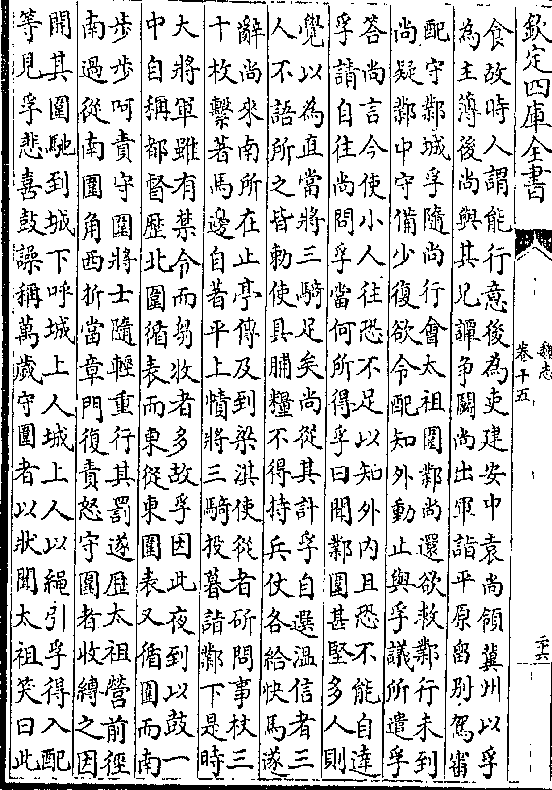 欽定四庫全書
魏志
卷十五
二十六
食故時人謂能行意後為吏建安中袁尚領冀州以孚
為主薄後尚與其兄譚争鬬尚出軍詣平原留别駕審
配守鄴城孚隨尚行會太祖圍鄴尚還欲救鄴行未到
尚疑鄴中守備少復欲令配知外動止與孚議所遣孚
答尚言今使小人往恐不足以知外内且恐不能自達
孚請自往尚問孚當何所得孚曰聞鄴圍甚堅多人則
覺以為直當將三騎足矣尚從其計孚自選溫信者三
人不語所之皆勅使具脯糧不得持兵仗各給快馬遂
辭尚來南所在止亭傳及到梁淇使從者斫問事杖三
十枚繫著馬邊自著平上幘將三騎投暮詣鄴下是時
大將軍雖有禁令而芻牧者多故孚因此夜到以鼓一
中自稱都督歷北圍循表而東從東圍表又循圍而南
步步呵責守圍將士隨輕重行其罰遂歷太祖營前徑
南過從南圍角西折當章門復責怒守圍者收縛之因
開其圍馳到城下呼城上人城上人以繩引孚得入配
等見孚悲喜鼓譟稱萬歲守圍者以狀聞太祖笑曰此